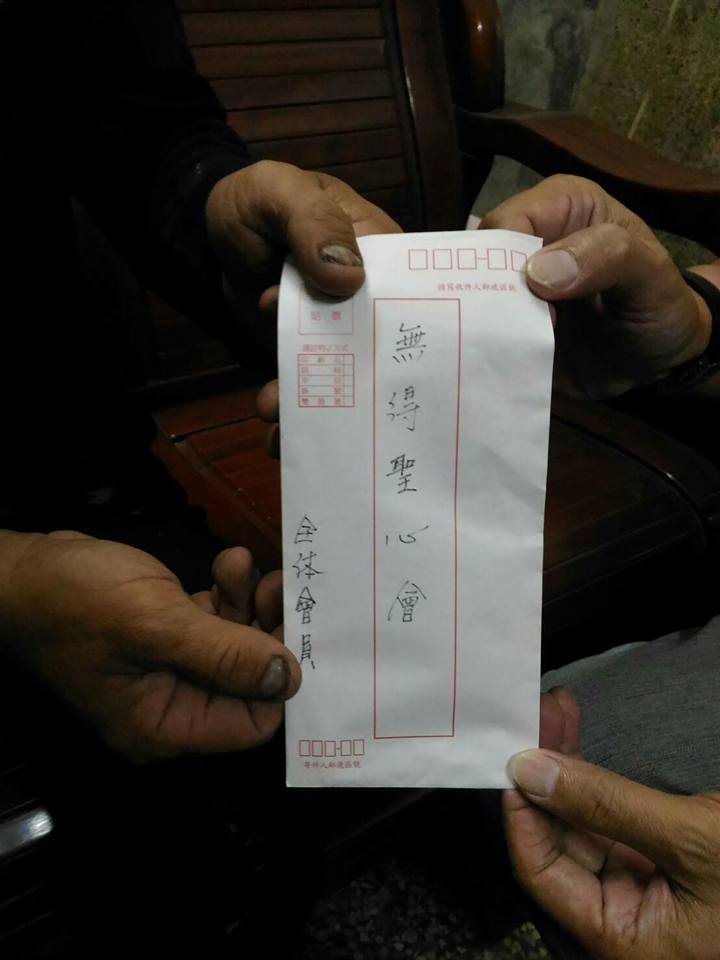 請寫收件人郵遞區號
無得聖心會
貼票
全体會員
寄件人郵遞區號